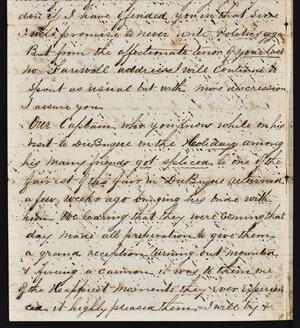 don if I have offended you in that line
I will promise to never write Politics again
But from the affectionate tenor of your last
no Farewell address I will continue to
spout as usual but with more discression
I assure you
Our Captain who you know while on his
visit to DuBuque on the Holiday among
his many friends got spliced to one of the
fairest of the fair in DuBuque returned
a few weeks ago bringing his bride with
him. We hearing that they were coming that
day made all preperation to give them
a grand reception turning out mounted
& fireing a cannon it was to them one
of the Happiest moments they ever experien
ced it highly pleased them. I will try &